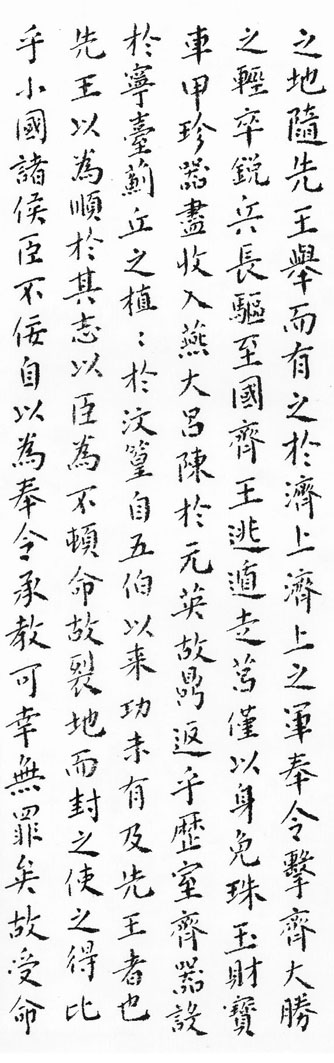 之地隨先王舉而有之於濟上濟上之軍奉令擊齊大勝
之輕卒銳兵長驅至國齊王逃遁走莒僅以身免珠玉財寶
車甲珍器盡收入燕大呂陳於元英故鼎返乎歷室齊器設
於寧臺薊丘之植〻於汶篁自五伯以来功未有及先王者也
先王以為順於其志以臣為不頓命故裂地而封之使之得比
乎小國諸侯臣不佞自以為奉令承教可幸無罪矣故受命